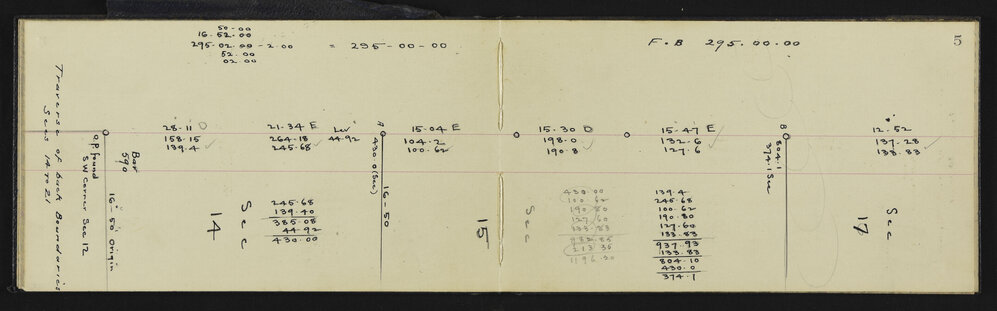 50-00
16.52.00
295.02.00 - 2.00 = 295-00-00
52.00
02.00
F.B 295.00.00
5
Traverse of back Boundaries
Secs 14 to 21
O.P found
S W Corner Sec 12
Bar
590
16-50 Origin
28-11 D
158.15
139.4
21.34 E
264.18
245.68
Lev
44.92
A
430.0 (Sec)
16-50
15.04 E
104.2
100.62
15.30 D
198.0
190.8
15.47 E
132.6
127.6
B
804.1
374.1 Sec
12.52
137-28
133.83
Sec
14
245.68
139.40
385.08
44.92
430.00
Sec
15
430.00
100.62
190.80
127.60
133.83
982.85
213.35
1196.20
139.4
245.68
100.62
190.80
127.60
133.83
937.93
133.83
804.10
430.0
374.1
Sec
17